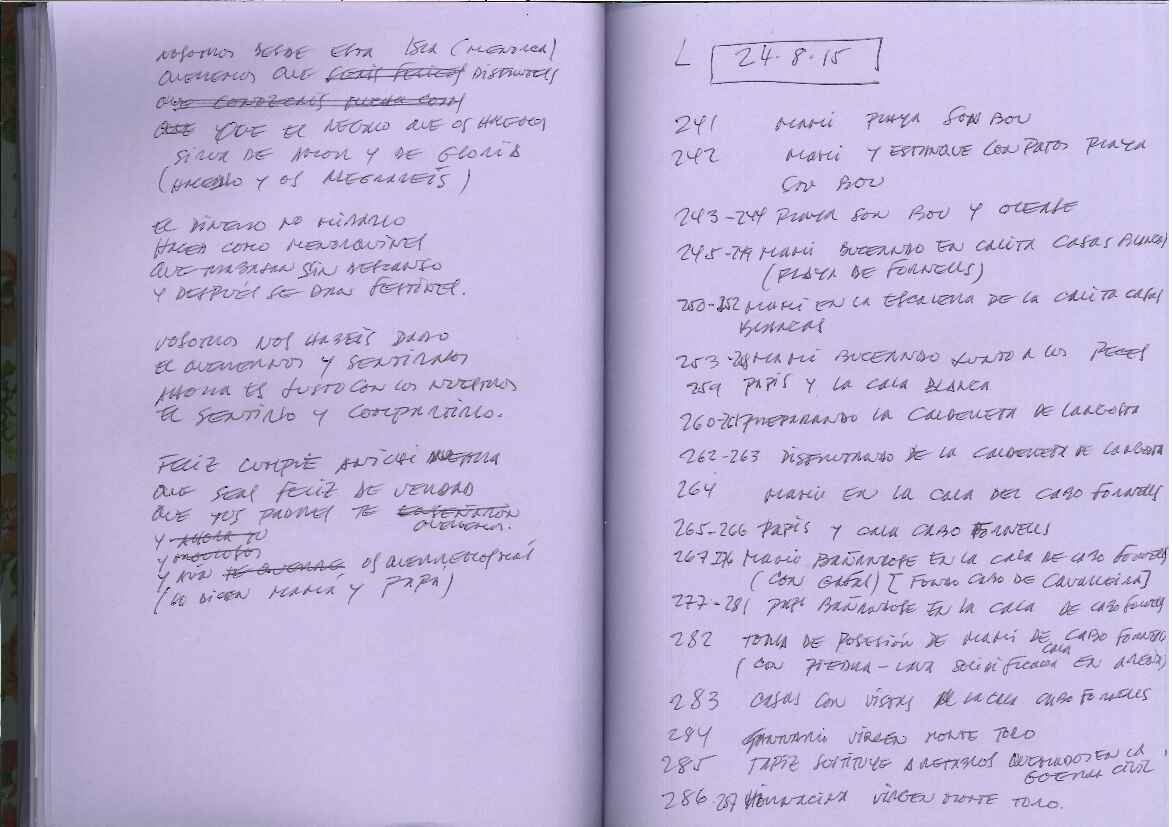 NOSOTROS DESDE ESTA ISLA (MENORCA)
QUEREMOS QUE SEAIS FELICES DISFRUTEIS
QUE CONOZCAIS BUENA COSA
QUE Y QUE EL REGALO QUE OS HACEMOS
SIRVA DE AMOR Y DE GLORIA
(HACEDLO Y OS ALEGRAREIS)
EL DINERO NO MIRARLO
HACED COMO MENORQUINES
QUE TRABAJAN SIN DESCANSO
Y DESPUÉS SE DAN FESTINES.
VOSOTROS NOS HABÉIS DADO
EL QUERERNOS Y SENTIRNOS
AHORA ES JUSTO CON LOS NUESTROS
EL SENTIRLO Y COMPARTIRLO.
FELIZ CUMPLE
QUE SEAS FELIZ DE VERDAD
QUE TUS PADRES TE ENSEÑARON
QUEREMOS.
Y AHORA TU
Y
Y AÚN TE QUEDAS OS QUERREMOS MÁS
(LO DICEN MAMÁ Y PAPÁ)
L 24·8·15
241 MAMI PLAYA SON BOU
242 MAMI Y ESTANQUE CON PATOS PLAYA
SON BOU
243-244 PLAYA SON BOU Y OLEAJE
245-249 MAMI BUCEANDO EN CALITA CASAS BLANCAS
(PLAYA DE FORNELLS)
250-252 MAMI EN LA ESCALERA DE LA CALITA CASAS
BLANCAS
253-258 MAMI BUCEANDO JUNTO A LOS PECES
259 PAPIS Y LA CALA BLANCA
260-261 PREPARANDO LA CALDERETA DE LANGOSTA
262-263 DISFRUTANDO DE LA CALDERETA DE LANGOSTA
264 MAMI EN LA CALA DEL CABO FORNELLS
265-266 PAPIS Y CALA CABO FORNELLS
267-276 MAMI BAÑANDOSE EN LA CALA DE CABO FORNELLS
(CON GAFAS) [FONDO CABO DE CAVALLERIA]
277-281 PAPI BAÑANDOSE EN LA CALA DE CABO FORNELLS
282 TOMA DE POSESIÓN DE MAMI DE CALA CABO FORNELLS
(CON PIEDRA-LAVA SOLIDIFICADA EN ARENA)
283 CASAS CON VISTAS DE LA CALA CABO FORNELLS
284 SANTUARIO VIRGEN MONTE TORO
285 TAPIZ SUSTITUYE A RETABLOS QUEMADOS EN LA
GUERRA CIVIL
286-287 HORNACINA VIRGEN MONTE TORO.